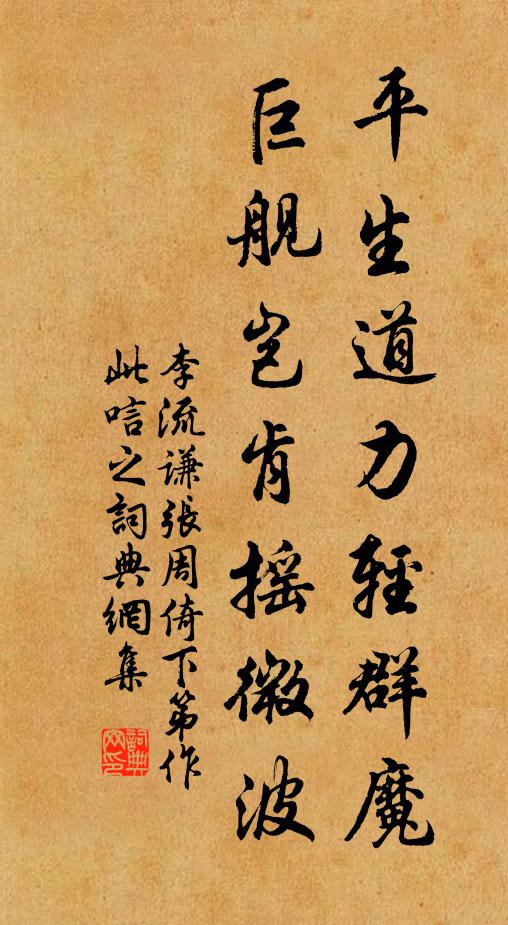 平生道力輕群魔
巨舰岂肯摇微波
李流谦張周倚下第作
此唁之詞典網集
詞典网印